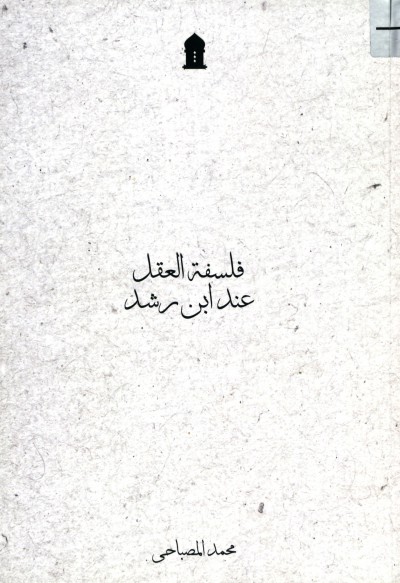 فلسفة العقل
عند ابن رشد
محمد المصباحي